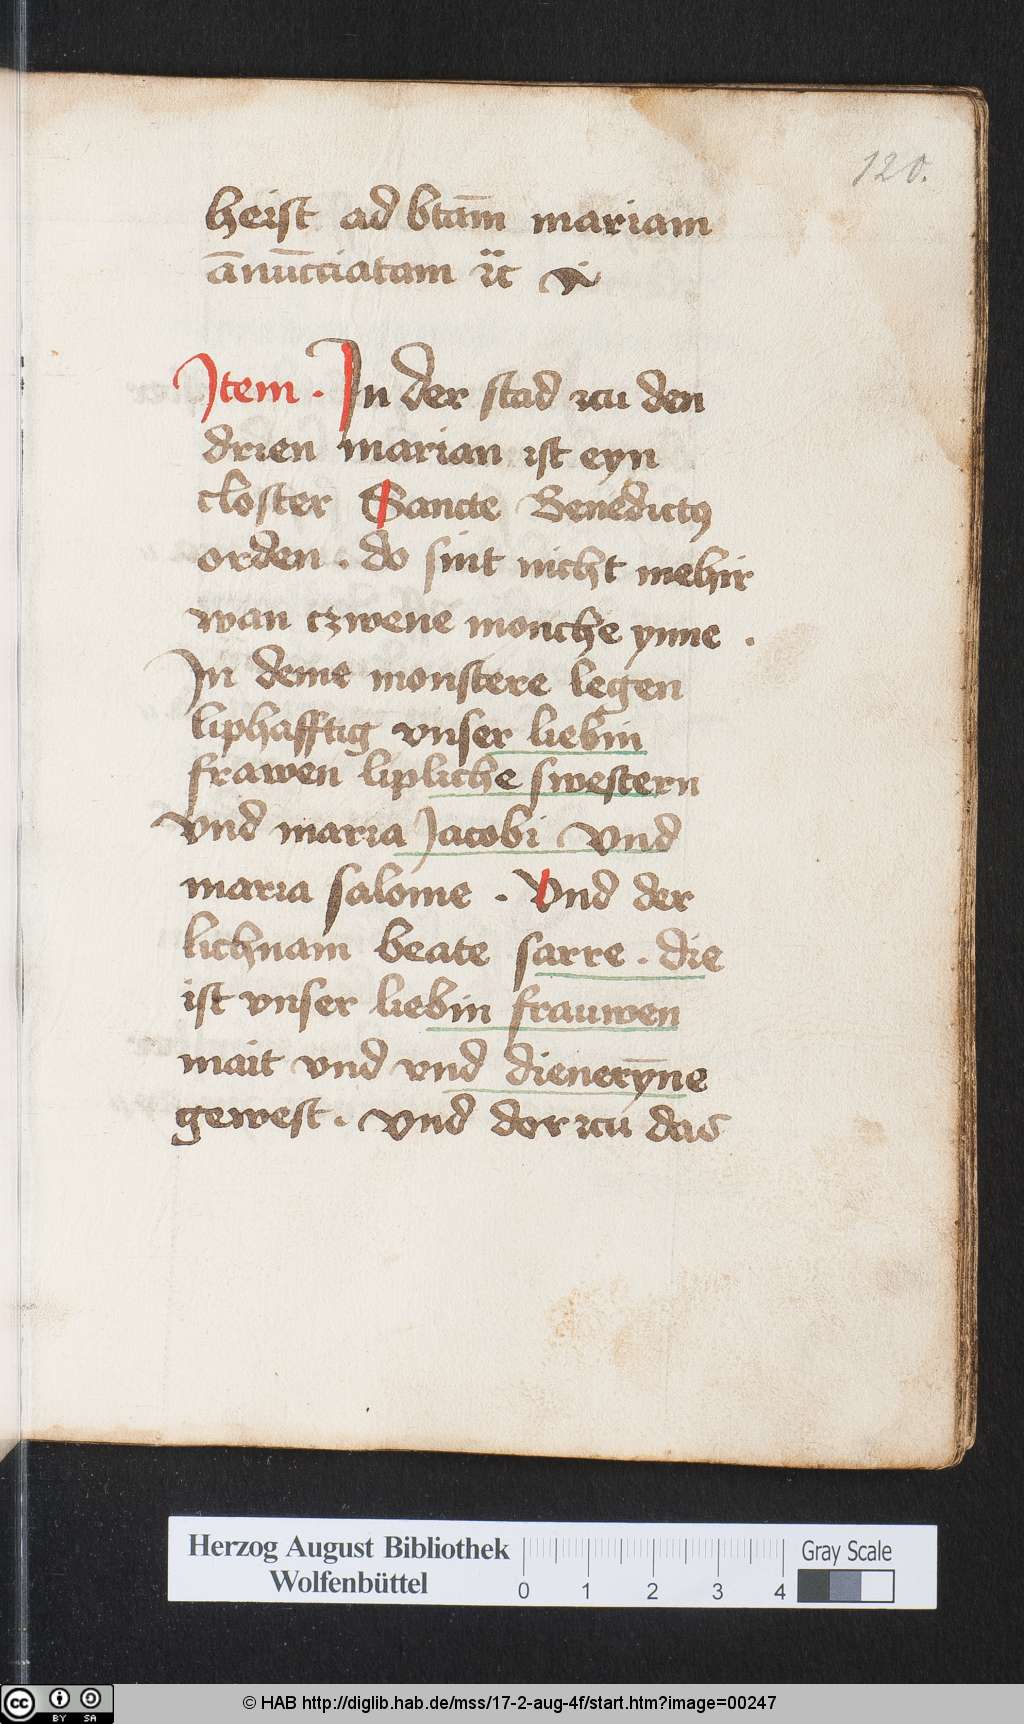 120.
heist ad btām mariam
ānūcciatam ꝛc̈
Item . In der stad zcu den
drien marian ist eyn
closter Sancte Benedictꝰ
orden . do sint nicht mehir
wan czwene monche ynne .
In deme monstere legen
liphafftig vnser liebin
frawen lipliche swestern
vnd maria Jacobi vnd
maria salome . Vnd der
lichnam beate sarre . die
ist vnser liebin frauwen
mait vnd vnd dienerȳne
gewest . Vnd dor zcu das
Herzog August Bibliothek
Wolfenbüttel
0 1 2 3 4
Gray Scale
cc BY SA
© HAB http://diglib.hab.de/mss/17-2-aug-4f/start.htm?image=00247